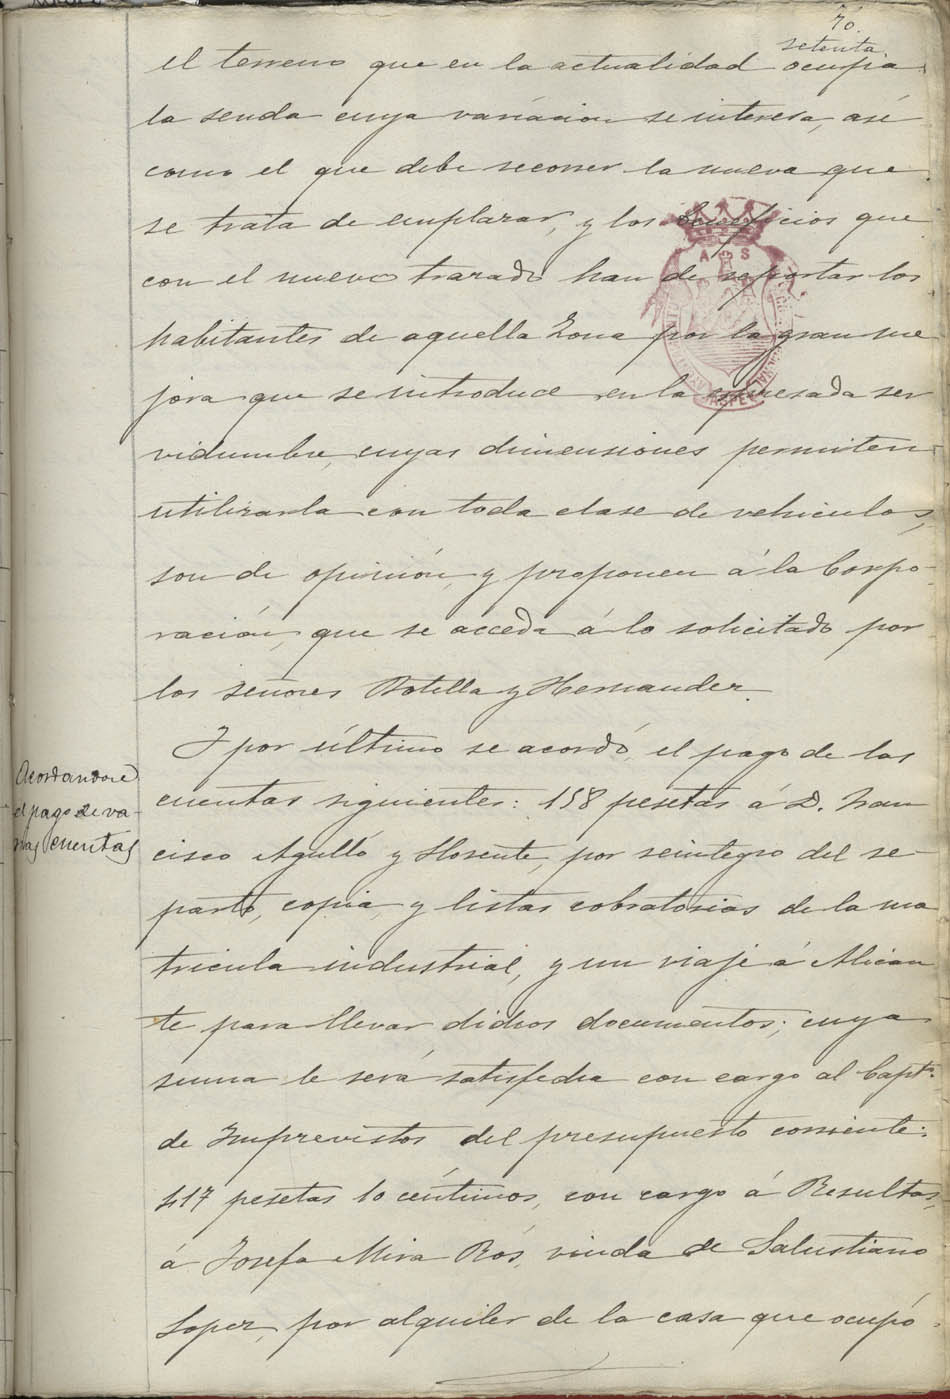 70.
setenta.
el terreno que en la actualidad ocupa
la senda cuya variacion se interesa, asi
como el que debe recorrer la nueva que
se trata de emplazar, y los beneficios que
con el nuevo trazado han de reportar los
habitantes de aquella Zona por la gran me
jora que se introduce en la expresada ser
vidumbre, cuyas dimensiones permiten
utilizarla con toda clase de vehiculos,
son de opinión, y proponen á la Corpo-
ración, que se acceda á lo solicitado por
los Señores Botella y Hernandez.
Y por último se acordó, el pago de las
Acordandose
el pago de va-
rias cuentas
cuentas siguientes: 158 pesetas á D. Fran
cisco Agulló y Llorente, por reintegro del re-
parto, copia, y listas cobratorias de la ma
tricula industrial, y un viaje á Alican
te para llevar dichos documentos; cuya
suma le será satisfecha con cargo al Capto.
de Imprevistos del presupuesto corriente:
417 pesetas 10 céntimos, con cargo á Resultas,
á Josefa Mira Ros, viuda de Salustiano
Lopez, por alquiler de la casa que ocupó
A S